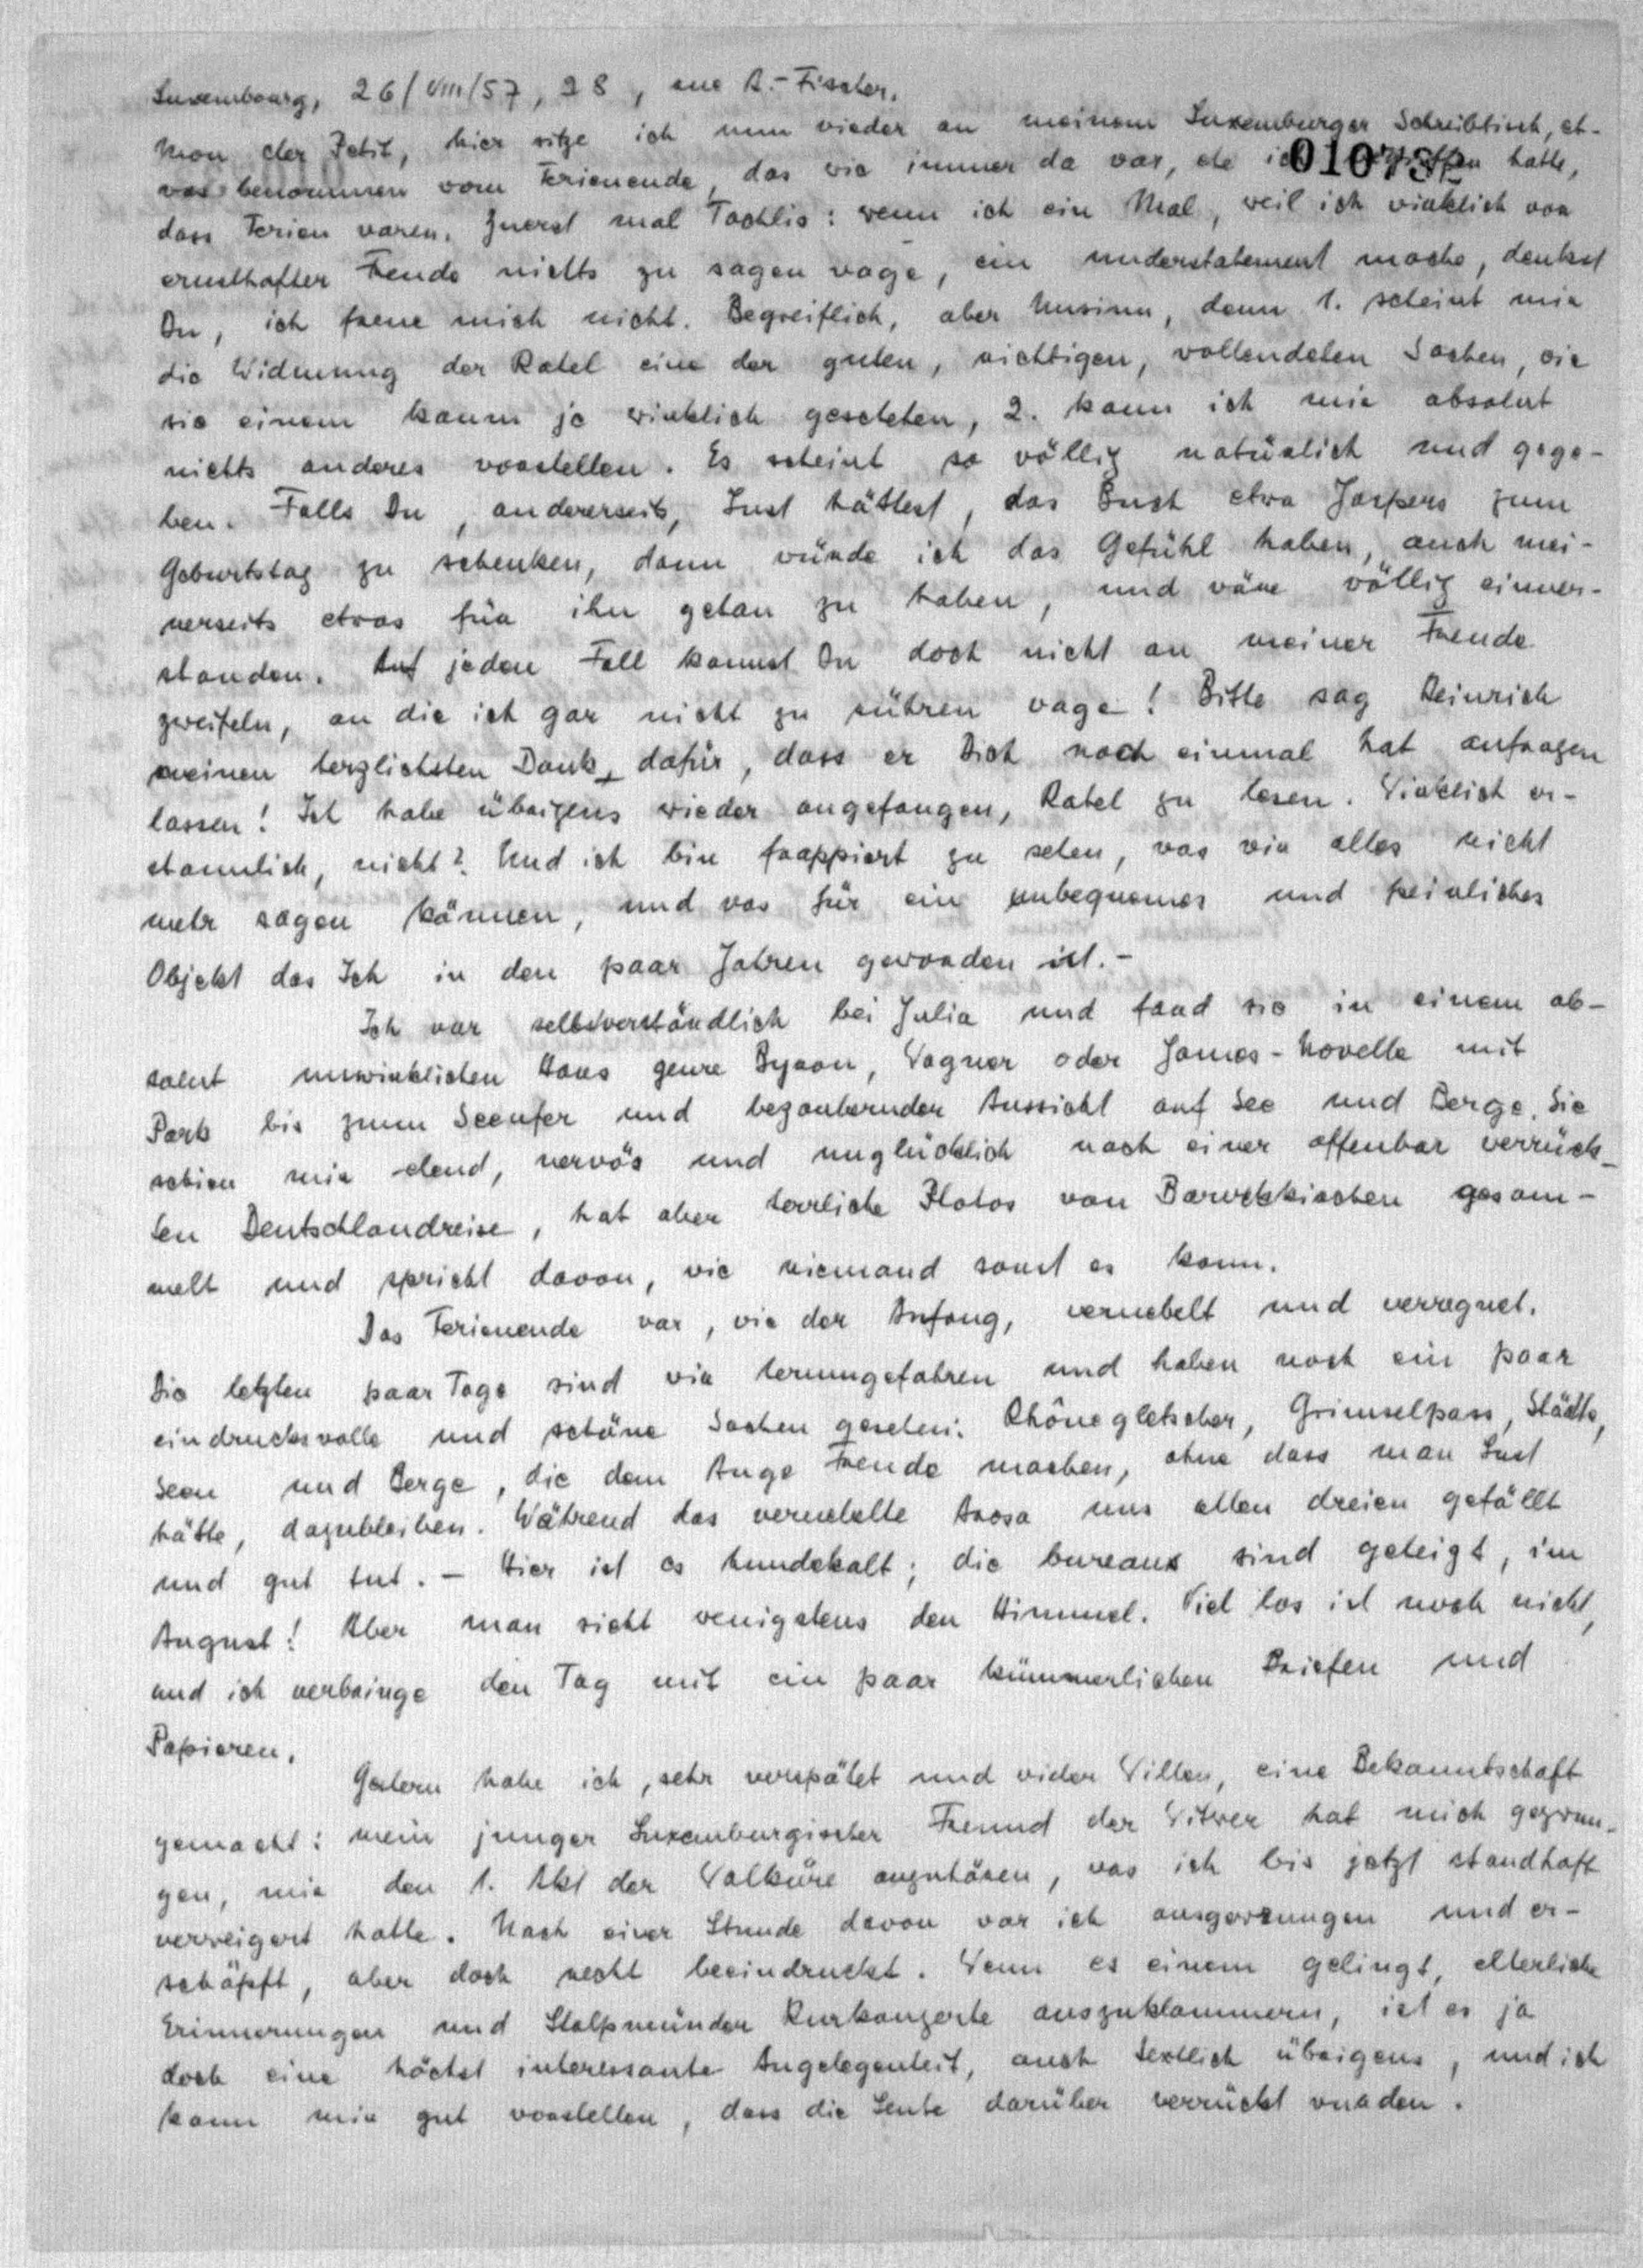 Luxembourg, 26/VIII/57, 28, rue A.-Fischer.
Mon cher Petit, hier sitze ich nun wieder an meinem Luxemburger Schreibtisch, et-
was benommen vom Ferienende, das wie immer da war, ehe ich hatte,
010732
dass Ferien waren. Zuerst mal Tachlis: wenn ich ein Mal, weil ich wirklich vor
ernsthafter Freude nichts zu sagen wage, ein understatement mache, denkst
Du, ich freue mich nicht. Begreiflich, aber Unsinn, denn 1. scheint mir
die Widmung der Rahel eine der guten, richtigen, vollendeten Sachen, wie
sie einem kaum je wirklich geschehen, 2. kann ich mir absolut
nichts anderes vorstellen. Es scheint so völlig natürlich und gege-
ben. Falls Du, andererseits, Lust hättest, das Buch etwa Jaspers zum
Geburtstag zu schenken, dann würde ich das Gefühl haben, auch mei-
nerseits etwas für ihn getan zu haben, und wäre völlig einver-
standen. Auf jeden Fall kannst Du doch nicht an meiner Freude
zweifeln, an die ich gar nicht zu rühren wage! Bitte sag Heinrich
meinen herzlichsten Dank, dafür, dass er Dich noch einmal hat anfragen
lassen! Ich habe übrigens wieder angefangen, Rahel zu lesen. Wirklich er-
staunlich, nicht? Und ich bin frappiert zu sehen, was wir alles nicht
mehr sagen können, und was für ein unbequemes und peinliches
Objekt das Ich in den paar Jahren geworden ist.-
Ich war selbstverständlich bei Julia und fand sie in einem ab-
solut unwirklichen Haus genre Byron, Wagner oder James-Novelle mit
Park bis zum Seeufer und bezaubernder Aussicht auf See und Berge. Sie
schien mir elend, nervös und unglücklich nach einer offenbar verrück-
ten Deutschlandreise, hat aber herrliche Photos von Barockkirchen gesam-
melt und spricht davon, wie niemand sonst es kann.
Das Ferienende war, wie der Anfang, vernebelt und verregnet.
Die letzten paar Tage sind wir herumgefahren und haben noch ein paar
eindrucksvolle und schöne Sachen gesehen: Rhônegletscher, Grimselpass, Städte,
Seen und Berge, die dem Auge Freude machen, ohne dass man Lust
hätte, dazubleiben. Während das vernebelte Arosa uns allen dreien gefällt
und gut tut. – Hier ist es hundekalt; die bureaux sind geheizt, im
August! Aber man sieht wenigstens den Himmel. Viel los ist noch nicht,
und ich verbringe den Tag mit ein paar kümmerlichen Briefen und
Papieren.
Gestern habe ich, sehr verspätet und wider Willen, eine Bekanntschaft
gemacht: mein junger Luxemburgischer Freund der Witwer hat mich gezwun-
gen, mir den 1. Akt der Walküre anzuhören, was ich bis jetzt standhaft
verweigert hatte. Nach einer Stunde davon war ich ausgewrungen und er-
schöpft, aber doch recht beeindruckt. Wenn es einem gelingt, elterliche
Erinnerungen und Stolpmünder Kurkonzerte auszuklammern, ist es ja
doch eine höchst interessante Angelegenheit, auch textlich übrigens, und ich
kann mir gut vorstellen, dass die Leute darüber verrückt wurden.